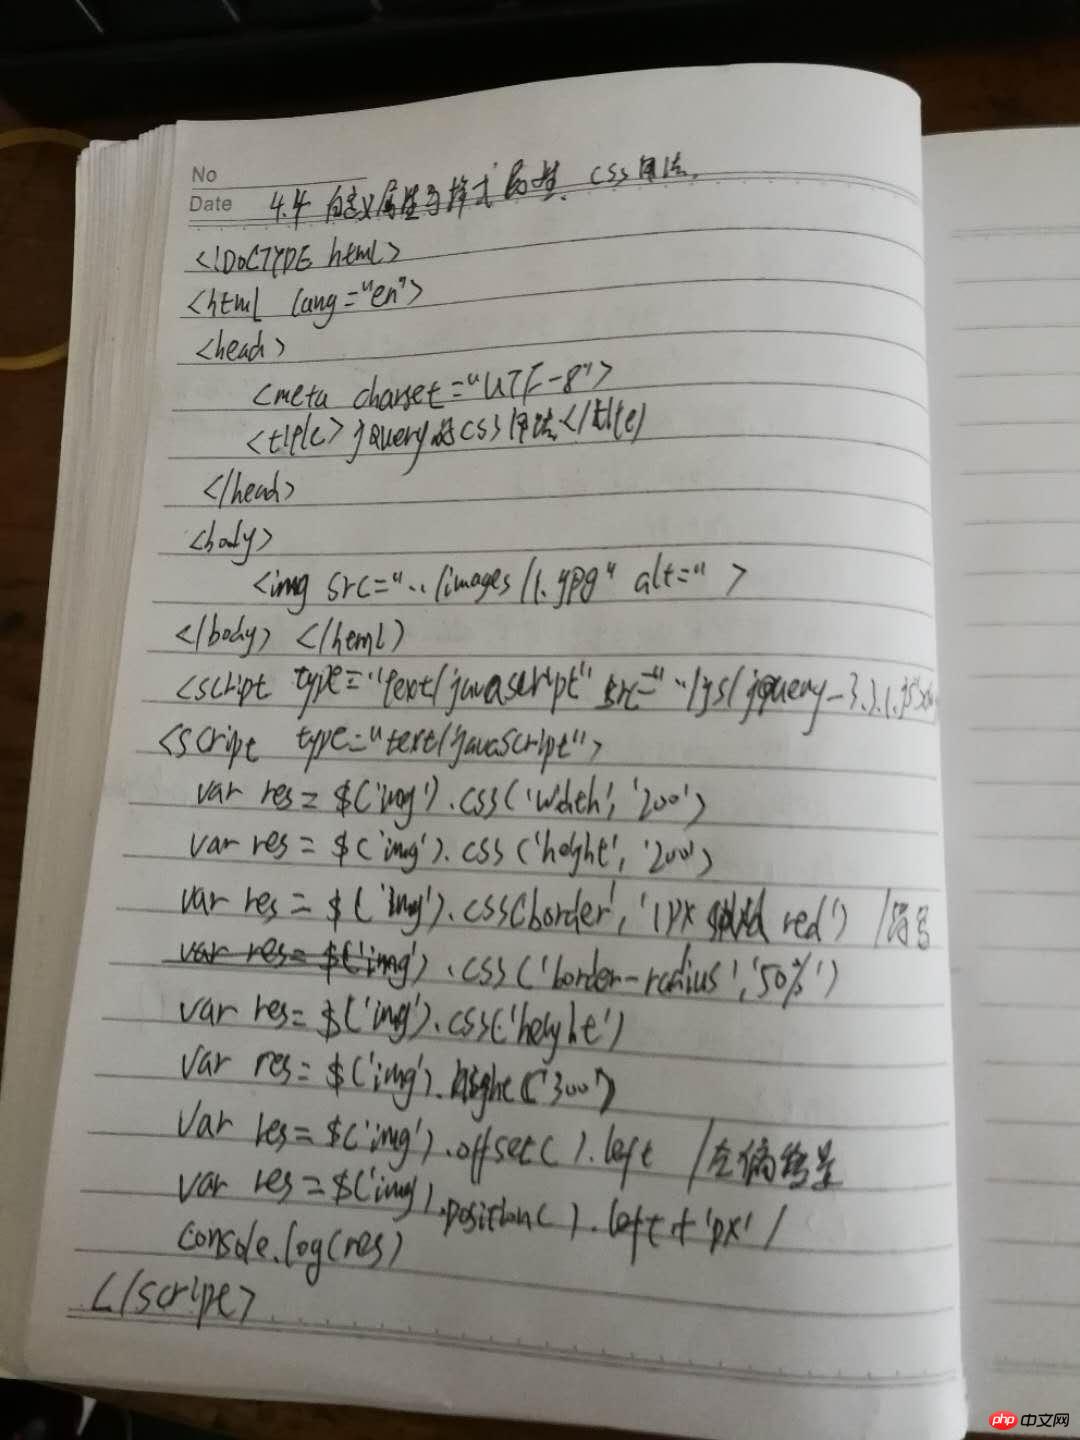 No
Date 4.4 自定义属性与样式属性. css用法.
<!DOCTYPE html>
<html lang="en">
<head>
<meta charset="UTF-8">
<title>jQuery的css用法</title>
</head>
<body>
<img src="../images/1.jpg" alt=" >
</body> </html>
<script type="text/javascript" src="../js/jquery-3.3.1.js">
<script type="text/javascript">
var res = $('img').css('width', '200')
var res = $('img').css('height', '200')
var res = $('img').css('border', '1px solid red') /
var res = $('img').css('border-radius','50%')
var res= $('img').css('height')
var res= $('img').height('300')
var res=$('img').offset().left /左偏移量
var res=$('img').position().left+'px' /
console.log(res)
</script>
php 中文网